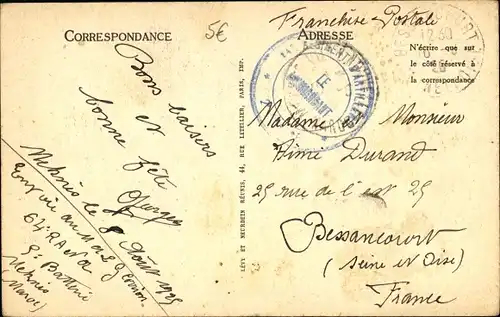 CORRESPONDANCE
5€
Bons baisers
et
bonne fête
Georges
Meknès le 8 Août 1925
Envoi au
64e R A N A
5e Batterie
Meknès
(Maroc)
LÉVY ET NEURDEIN RÉUNIS, 44, RUE LETELLIER, PARIS, IMP.
Franchise Postale
ADRESSE
N'écrire que sur
le côté réservé à
la correspondance
LE
COMMANDANT
Madame Monsieur
Aimé Durand
25 rue de l'est 25
Bessancourt
(Seine et Oise)
France